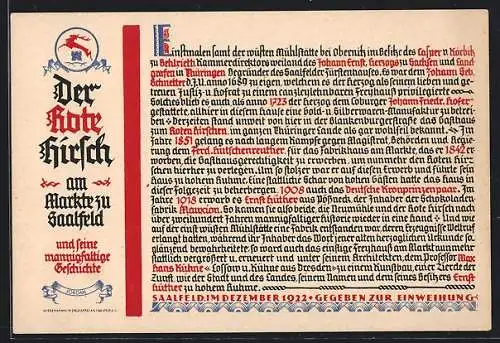 Der
Rote
Hirsch
am
Markte zu
Saalfeld
und seine
mannigfaltige
Geschichte
Einstmalen samt der wüsten Mühlstätte bei Obernitz im Besitze des Casper v. Körbitz
zu Gehlrieth Kammerdirektors weiland des Johann Ernst, Herzogs zu Sachsen und Land
grafen in Thüringen Begründer des Saalfelder Fürstenhauses. Es war dem Johann Geb.
Schnetter d.J.U. anno 1689 zu eigen, welchem es der Herzog als seinem lieben und ge-
treuen Justiz- u Hofrat zu einem canzleylehnbaren Freyhaus privilegierte
Solches blieb es auch als anno 1723 der Herzog dem Coburger Johann Friedr. Hofer
gestattete, allhier in diesem Hause eine Gold- u Silberwarn-Manufaktur zu betrei-
ben Derzeiten stand unweit von hier in der Blankenburgerstraße das Gasthaus
zum Roten Hirschen, im ganzen Thüringer Lande als gar wohlfeil bekannt. Im
Jahr 1851 gelang es nach langem Kampfe gegen Magistrat, Behörden und Regie-
rung dem Ferd. Lutschenreuther, für das Fabrikhaus am Markte, das er 1842 er
worben, die Gasthausgerechtigkeit zu erwerben, um nunmehr den Roten Hir-
schen hierher zu verlegen. Um so stolzer war er auf diesen Erwerb und führte sein
Haus zu hohem Ruhme. Eine stattliche Schar von hohen Gästen hatte das Haus in
dieser Folgezeit zu beherbergen, 1908 auch das Deutsche Kronprinzenpaar. Im
Jahre 1918 erwarb es Ernst Hüther aus Pößneck, der Inhaber der Schokoladen-
fabrik Mauxion. So kamen sie also beide, der Neumühle und der Rote Hirsch nach
über zweihundert Jahren mannigfaltiger Historie wieder in eine Hand Und wie
auf der einst wüsten Mühlstätte eine Fabrik entstanden war, deren Erzeugnisse Weltruf
erlangt hatten, während ihr Inhaber das Wort jener alten herzoglichen Urkunde so
glänzend bewahrheitete, so ward auch das einstige Freyhaus am Markt nunmehr
stattlich vergrößert u erneuert und unter seinem Architekten, dem Professor Max
Hans Kühne Lossow u Kühne aus Dresden zu einem Kunstbau, einer Zierde der
Zunft wie der Stadt und des Landes, seinem Namen und dem seines Besitzers Ernst
Hüther zu hohem Ruhme.
SAALFELD, IM DEZEMBER 1922 • GEGEBEN ZUR EINWEIHUNG